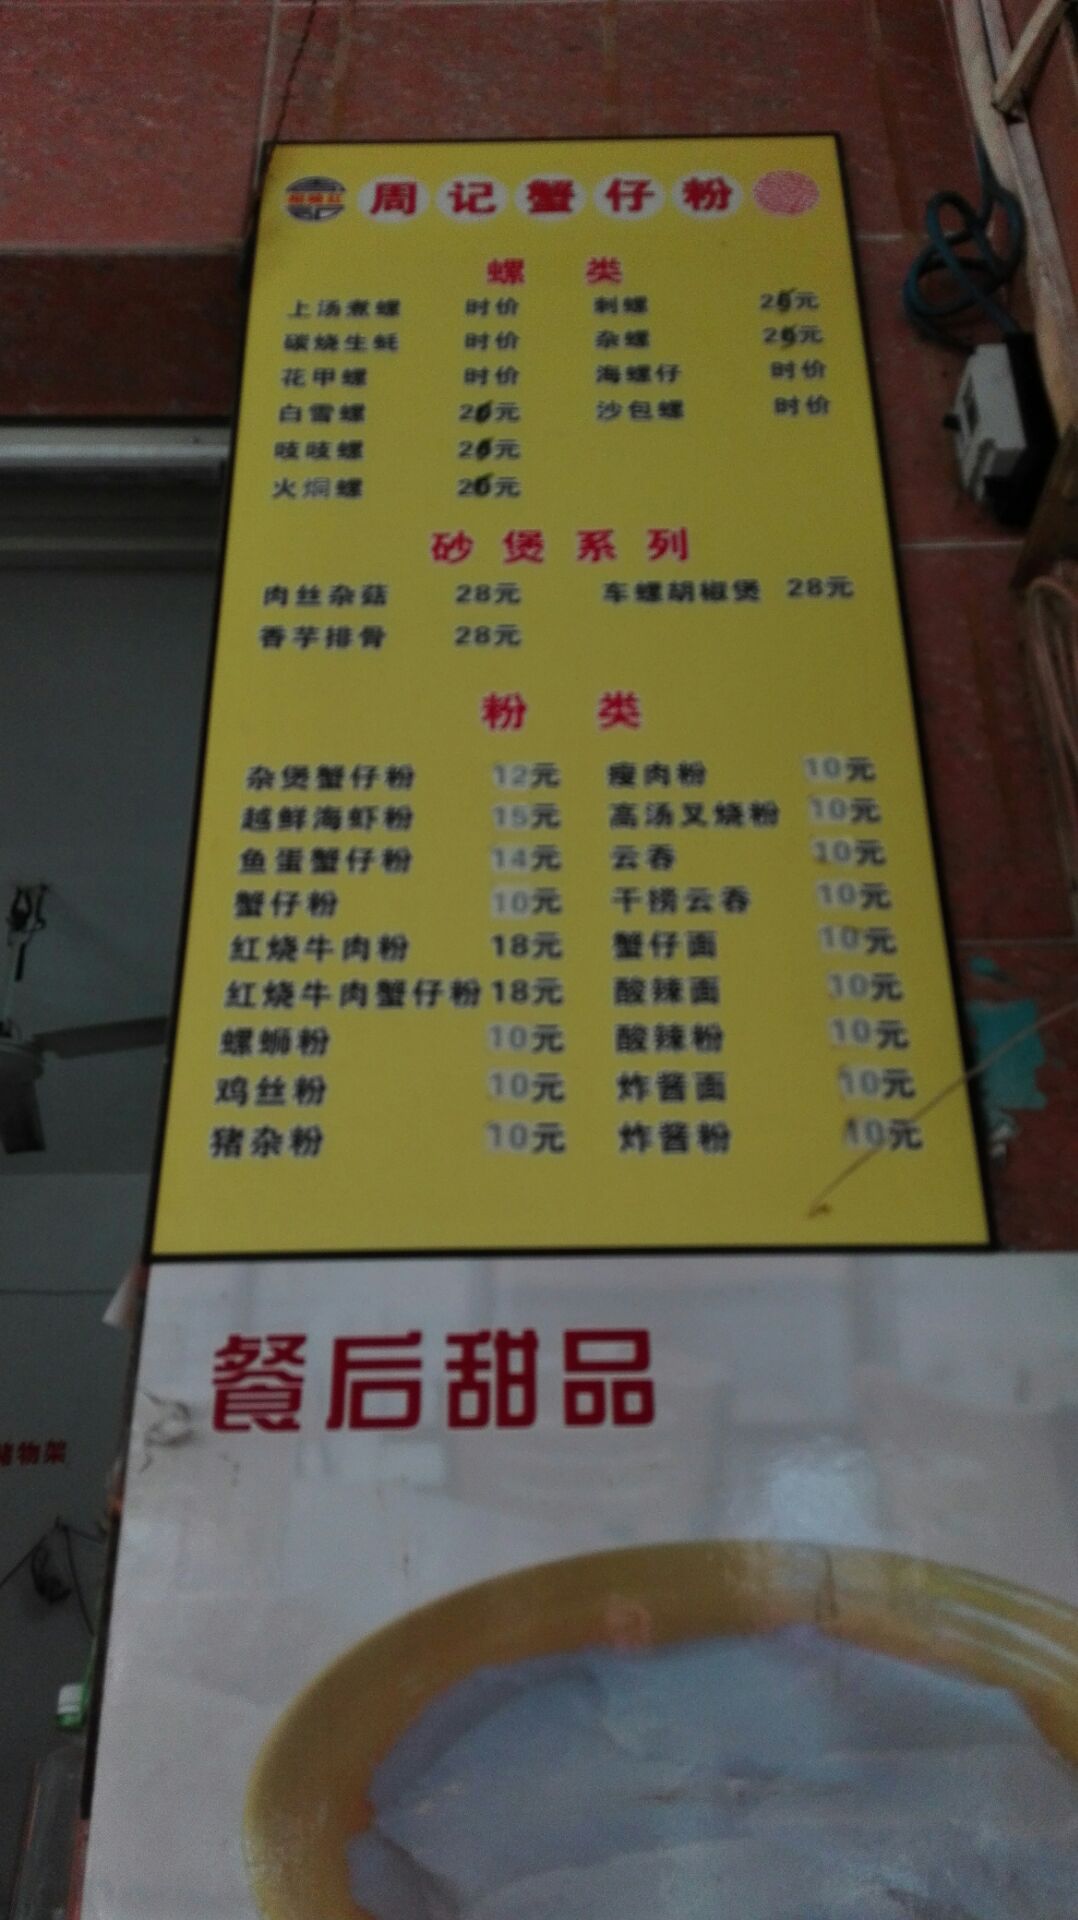 周记蟹仔粉
螺类
上汤煮螺 时价 刺螺 元
碳烧生蚝 时价 杂螺 元
花甲螺 时价 海螺仔 时价
白雪螺 元 沙包螺 时价
吱吱螺 元
火焗螺 元
砂煲系列
肉丝杂菇 28元 车螺胡椒煲 28元
香芋排骨 28元
粉类
杂煲蟹仔粉 12元 瘦肉粉 10元
越鲜海虾粉 15元 高汤叉烧粉 10元
鱼蛋蟹仔粉 14元 云吞 10元
蟹仔粉 10元 干捞云吞 10元
红烧牛肉粉 18元 蟹仔面 10元
红烧牛肉蟹仔粉 18元 酸辣面 10元
螺蛳粉 10元 酸辣粉 10元
鸡丝粉 10元 炸酱面 10元
猪杂粉 10元 炸酱粉 10元
餐后甜品
物架